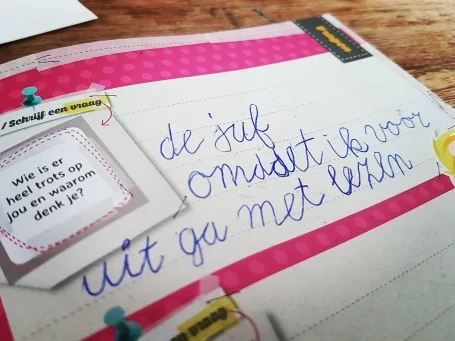 vragen
/ Schrijf een vraag
Wie is er
heel trots op
jou en waarom
denk je?
de juf
omdat ik voor
uit ga met lezen
vraag